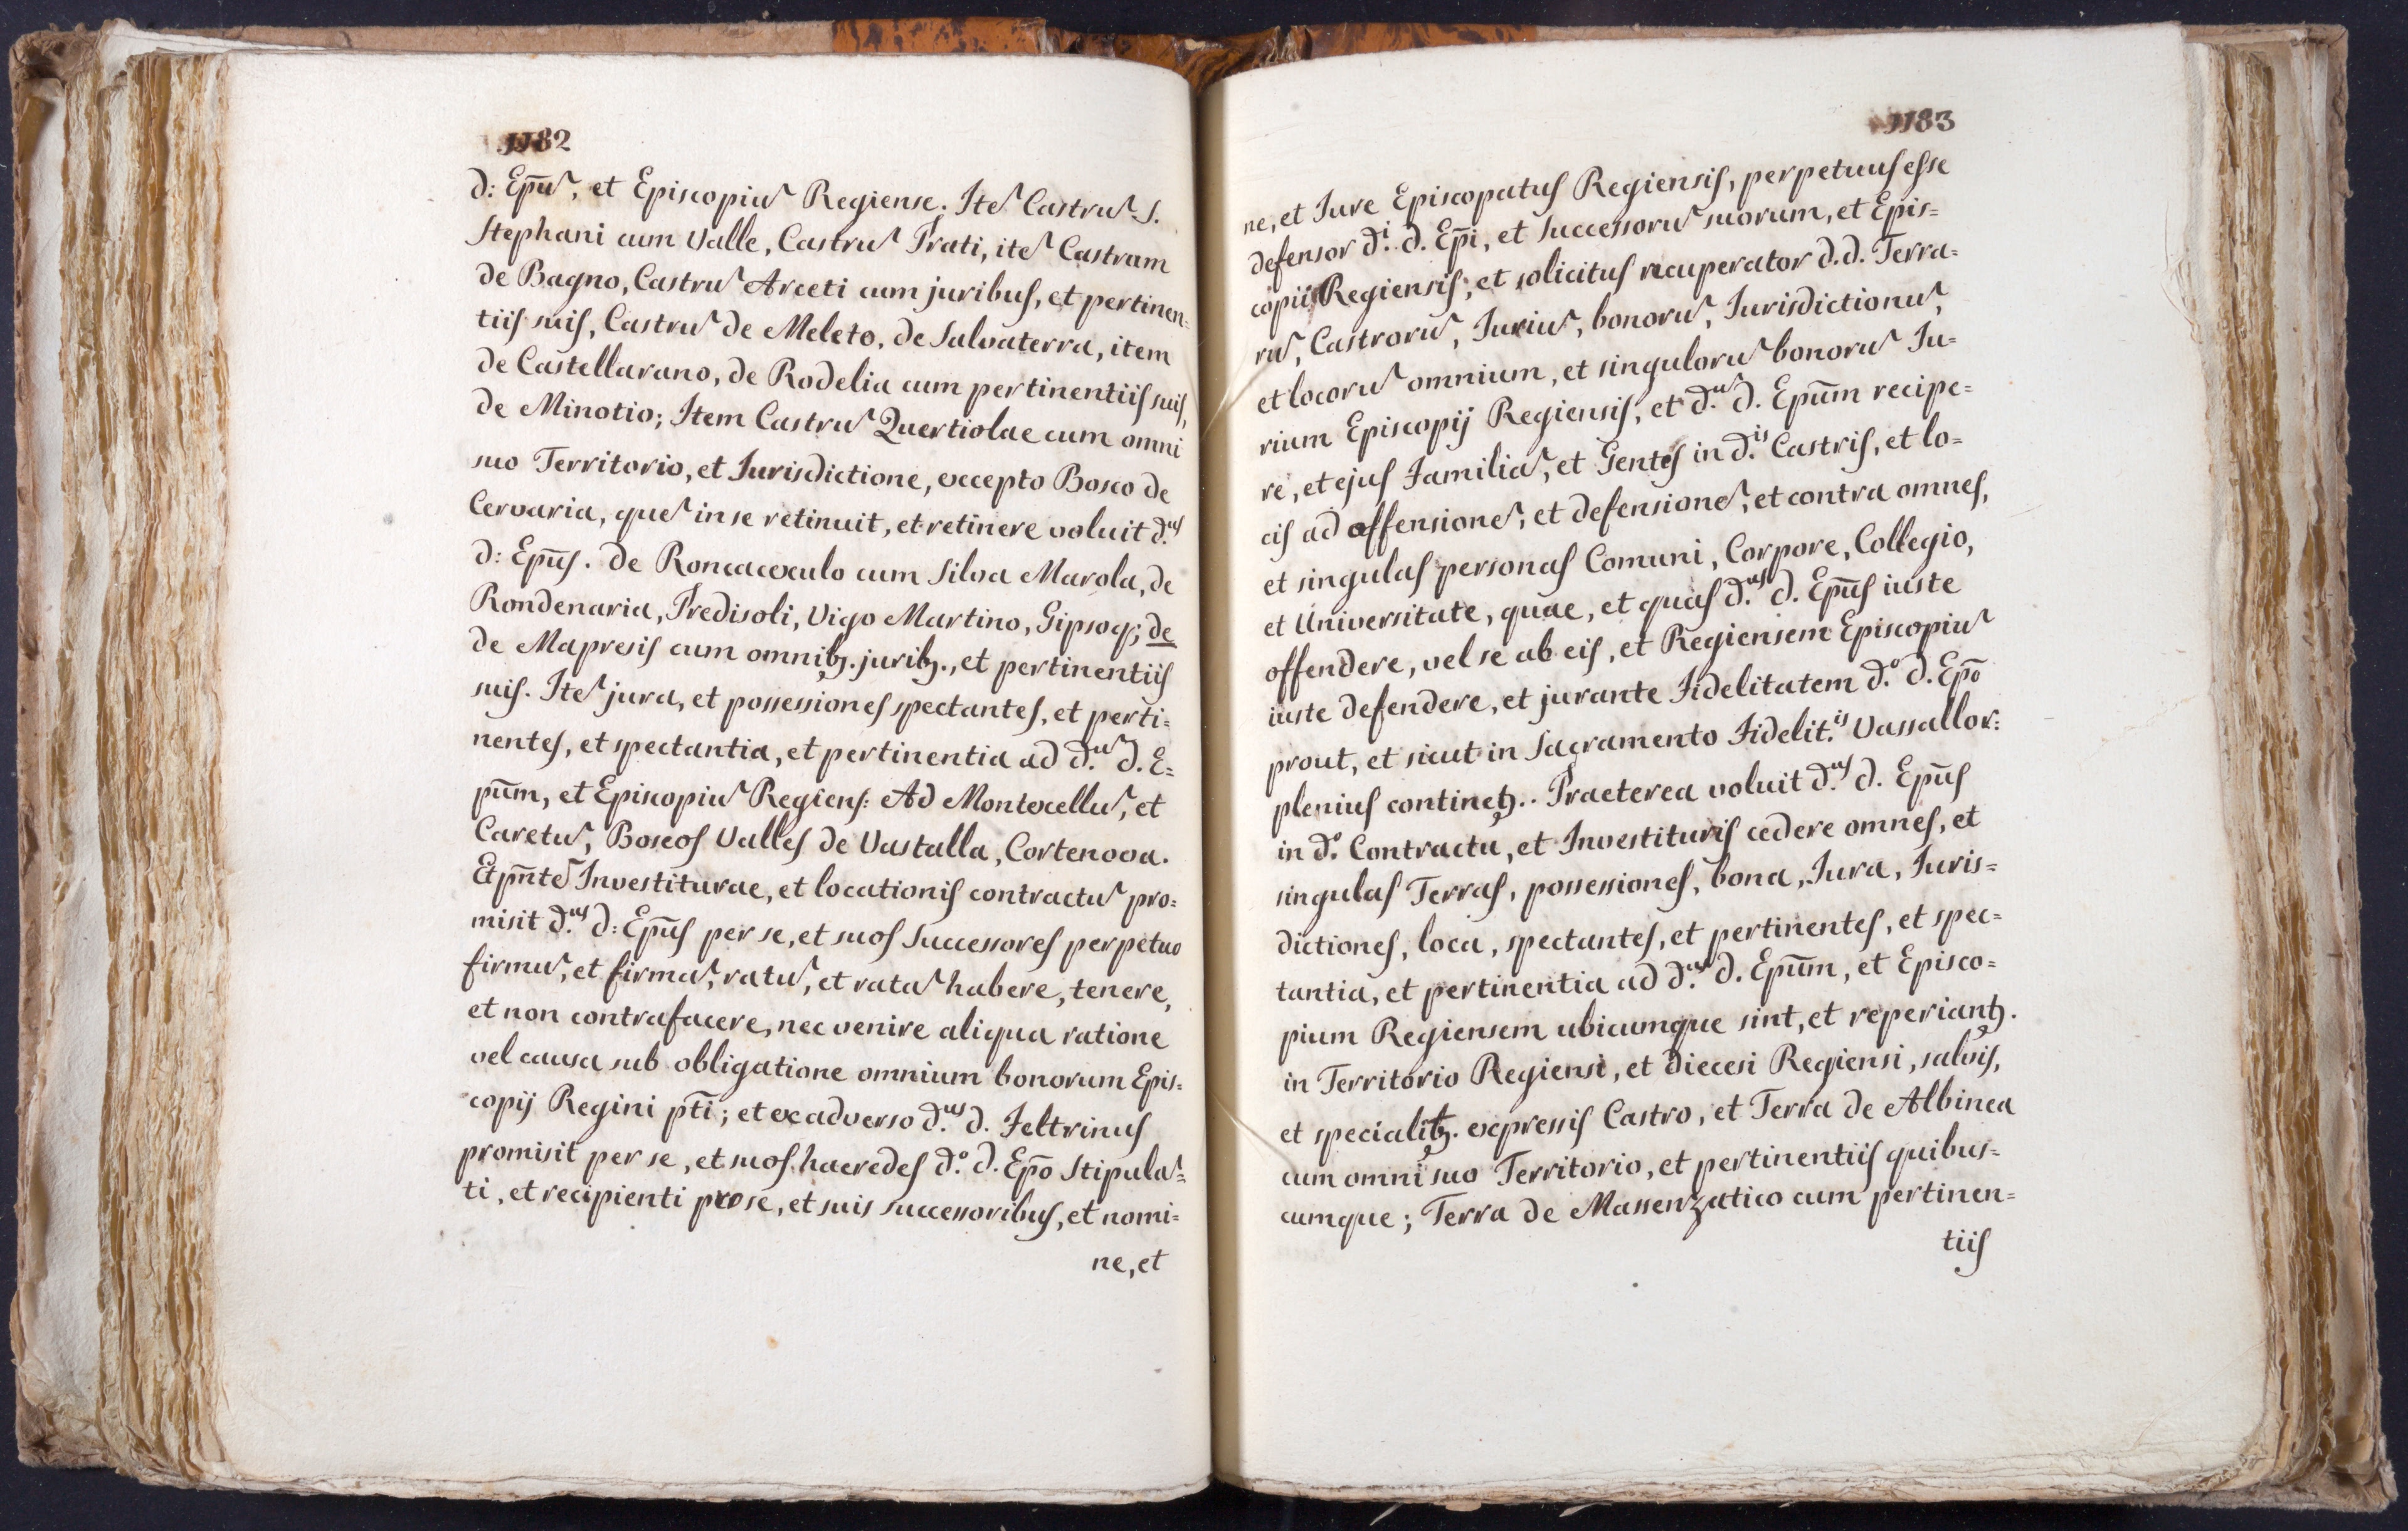 1182
d: Epūm, et Episcopium Regiense. Item Castrum S.
Stephani cum Valle, Castrum Prati, item Castrum
de Bagno, Castrum Arceti cum juribus, et pertinen=
tiis suis, Castrum de Meleto, de Salvaterra, item
de Castellarano, de Rodelia cum pertinentiis suis,
de Minotio; Item Castrum Quertiolae cum omni
suo Territorio, et Jurisdictione, excepto Bosco de
Cervaria, quem in se retinuit, et retinere voluit d.us
d: Epūs. de Roncacexulo cum Silva Marola, de
Rondenaria, Predisoli, Vigo Martino, Gipsoq; de
de Mapresis cum omnibȝ. juribȝ., et pertinentiis
suis. Item jura, et possessiones spectantes, et perti=
nentes, et spectantia, et pertinentia ad d.um d. E=
pūm, et Episcopium Regiens: Ad Montexellum, et
Caretum, Boscos Valles de Vastalla, Cortenova.
Et pñtem Investiturae, et locationis contractum pro=
misit d.us d: Epūs per se, et suos Successores perpetuo
firmum, et firmam, ratum, et ratam habere, tenere,
et non contrafacere, nec venire aliqua ratione
vel causa sub obligatione omnium bonorum Epis=
copij Regini pti̅; et ex adverso d.us d. Feltrinus
promisit per se, et suos haeredes d.o d. Epo̅ Stipulan=
ti, et recipienti pro se, et suis successoribus, et nomi=
ne, et
1183
ne, et Jure Episcopatus Regiensis, perpetuus esse
defensor d.i d. Epi̅, et Successorum suorum, et Epis=
copii Regiensis; et solicitus recuperator d.d. Terra=
rum, Castrorum, Jurium, bonorum, Jurisdictionum,
et locorum omnium, et singulorum bonorum Ju=
rium Episcopij Regiensis, et d.um d. Epūm recipe=
re, et ejus Familiam, et Gentes in d.is Castris, et lo=
cis ad offensionem, et defensionem, et contra omnes,
et singulas personas Comuni, Corpore, Collegio,
et Universitate, quae, et quas d.us d. Epūs iuste
offendere, vel se ab eis, et Regiensem Episcopium
iuste defendere, et jurante Fidelitatem d.o d. Epo̅
prout, et sicut in Sacramento Fidelit.is Vassallor:
plenius continetȝ.. Praeterea voluit d.us d. Epūs
in d.o Contractu, et Investituris cedere omnes, et
singulas Terras, possessiones, bona, Jura, Juris=
dictiones, loca, spectantes, et pertinentes, et spec=
tantia, et pertinentia ad d.um d. Epūm, et Episco=
pium Regiensem ubicumque sint, et reperiantȝ.
in Territorio Regiensi, et Diecesi Regiensi, salvis,
et specialitȝ. expressis Castro, et Terra de Albinea
cum omni suo Territorio, et pertinentiis quibus=
cumque; Terra de Massenzatico cum pertinen=
tiis